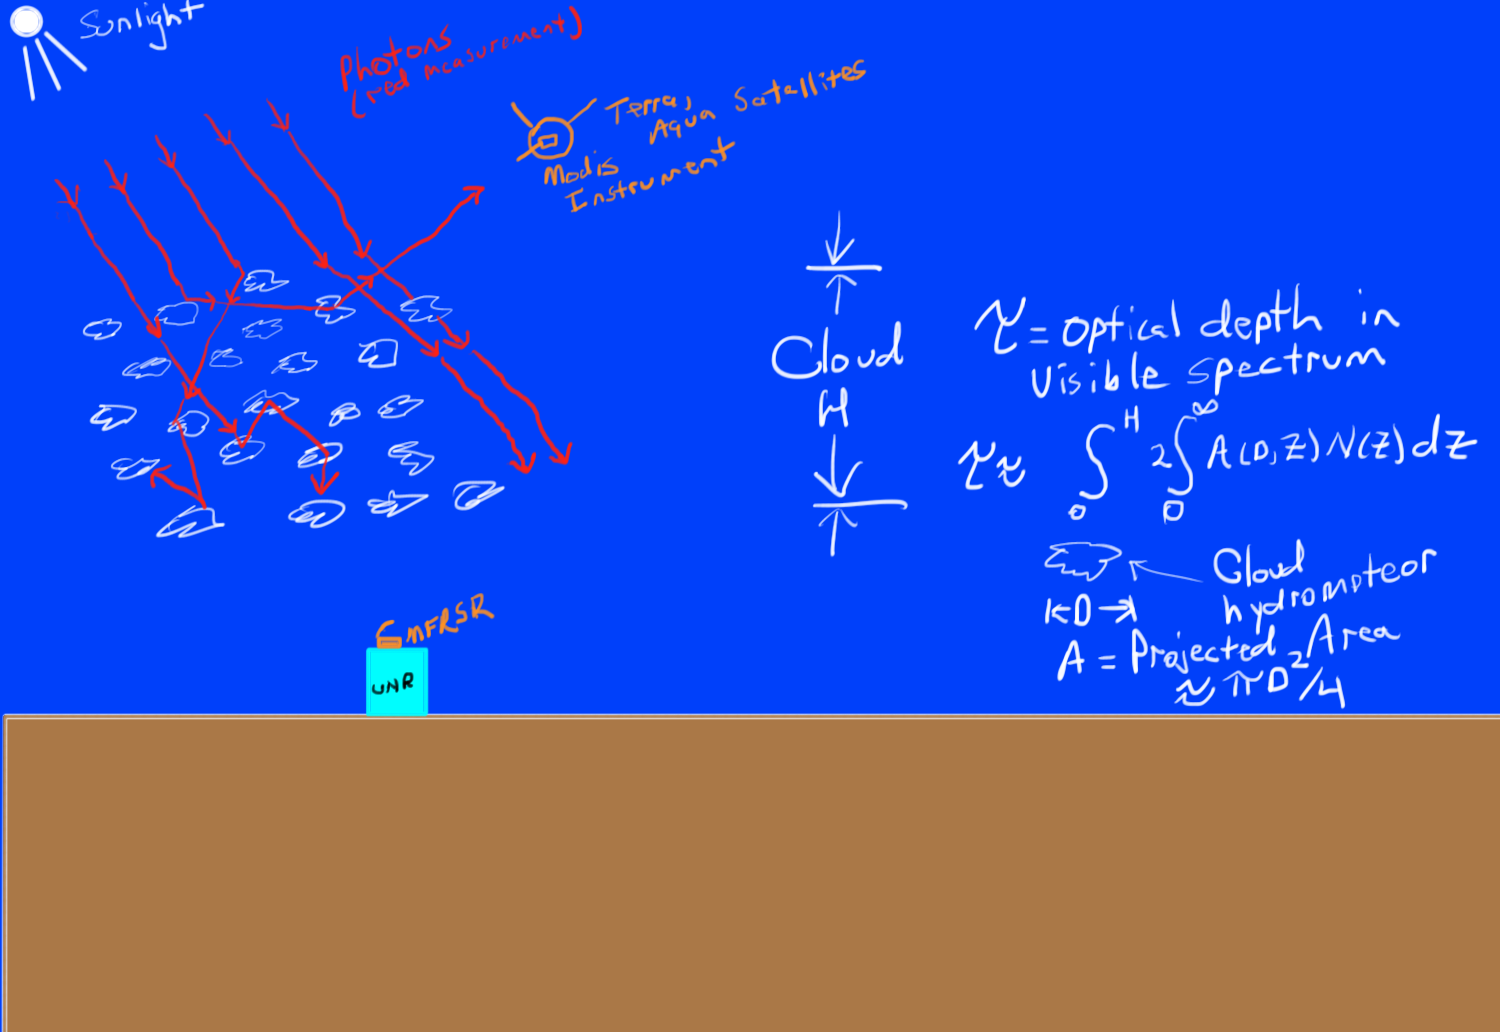 Sunlight
Photons
(red measurement)
Terra,
Aqua Satellites
Modis
Instrument
Cloud
H
τ = optical depth in
visible spectrum
τ ≈ ∫₀ᴴ 2∫₀^∞ A(D,Z) N(Z) dz
Cloud
hydrometeor
|← D →|
A = Projected Area
≈ πD²/4
MFRSR
UNR